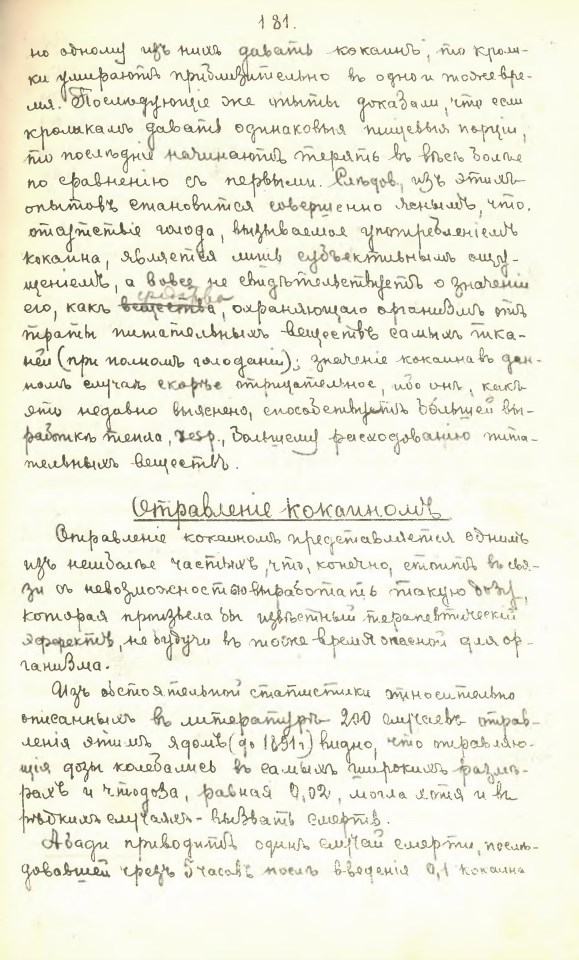 181.
но одному изъ нихъ давать кокаинъ, то кроли-
ки умираютъ приблизительно въ одно и тоже вре-
мя. Послѣдующіе же опыты доказали, что если
кроликамъ давать одинаковыя пищевыя порціи,
то послѣдніе начинаютъ терять въ вѣсѣ болѣе
по сравненію съ первыми. Слѣдов., изъ этихъ
опытовъ становится совершенно яснымъ, что
отсутствіе голода, вызываемое употребленіемъ
кокаина, является лишь субъективнымъ ощу-
щеніемъ, а вовсе не свидѣтельствуетъ о значеніи
средства
его, какъ вещества, охраняющаго организмъ отъ
траты питательныхъ веществъ самыхъ тка-
ней (при полномъ голоданіи); значеніе кокаина въ дан-
номъ случаѣ скорѣе отрицательное, ибо онъ, какъ
это недавно выяснено, способствуетъ большей вы-
работкѣ тепла, resp., большему расходованію пита-
тельныхъ веществъ.
Отравленіе кокаиномъ
Отравленіе кокаиномъ представляется однимъ
изъ наиболѣе частыхъ, что, конечно, стоитъ въ свя-
зи съ невозможностью выработать такую дозу,
которая произвела бы извѣстный терапевтическій
эффектъ, не будучи въ тоже время опасной для ор-
ганизма.
Изъ обстоятельной статистики относительно
описанныхъ въ литературѣ 200 случаевъ отрав-
ленія этимъ ядомъ (до 1891г.) видно, что отравляю-
щія дозы колебались въ самыхъ широкихъ размѣ-
рахъ и что доза, равная 0,02, могла хотя и въ
рѣдкихъ случаяхъ - вызвать смерть.
Абади приводитъ одинъ случай смерти, послѣ-
довавшей чрезъ 5 часовъ послѣ введенія 0,1 кокаина